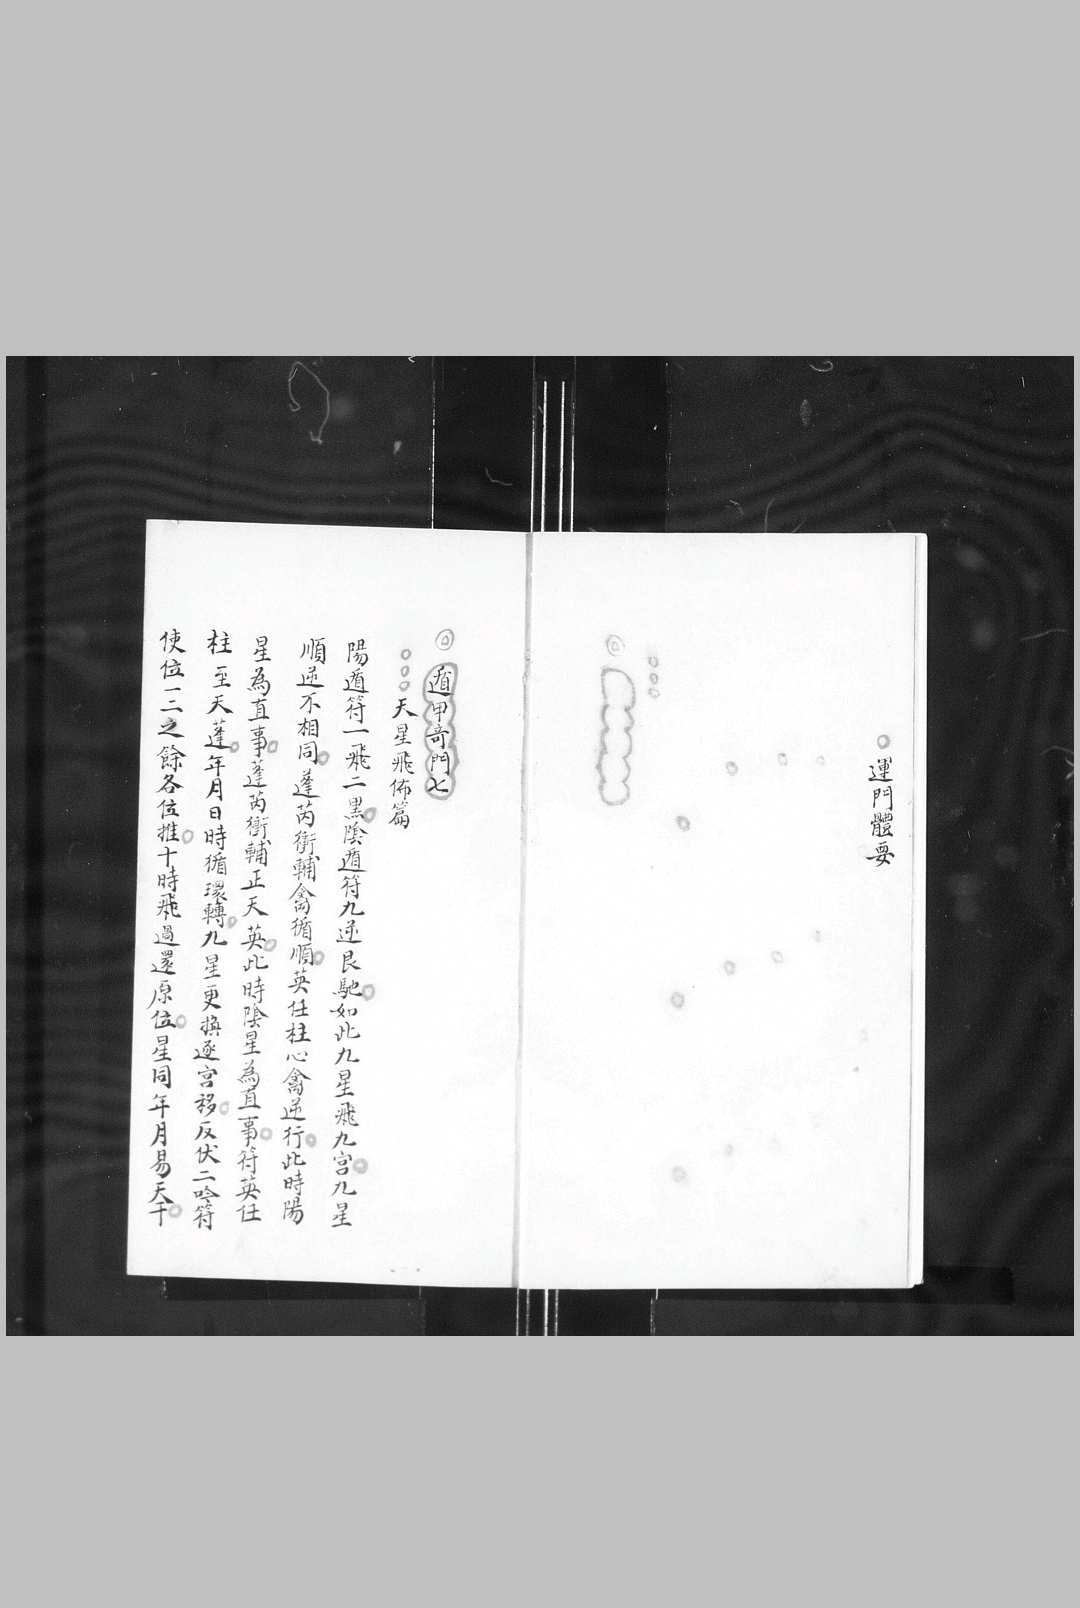 運門體要
遁甲奇門七
天星飛佈篇
陽遁符一飛二黑陰遁符九逆艮馳如此九星飛九宮九星
順逆不相同蓬芮衝輔禽循順英任柱心禽逆行此時陽
星為直事蓬芮衝輔正天英此時陰星為直事符英任
柱至天蓬年月日時循環轉九星更換逐宮移反伏二吟符
使位一二之餘各位推十時飛過還原位星同年月易天干